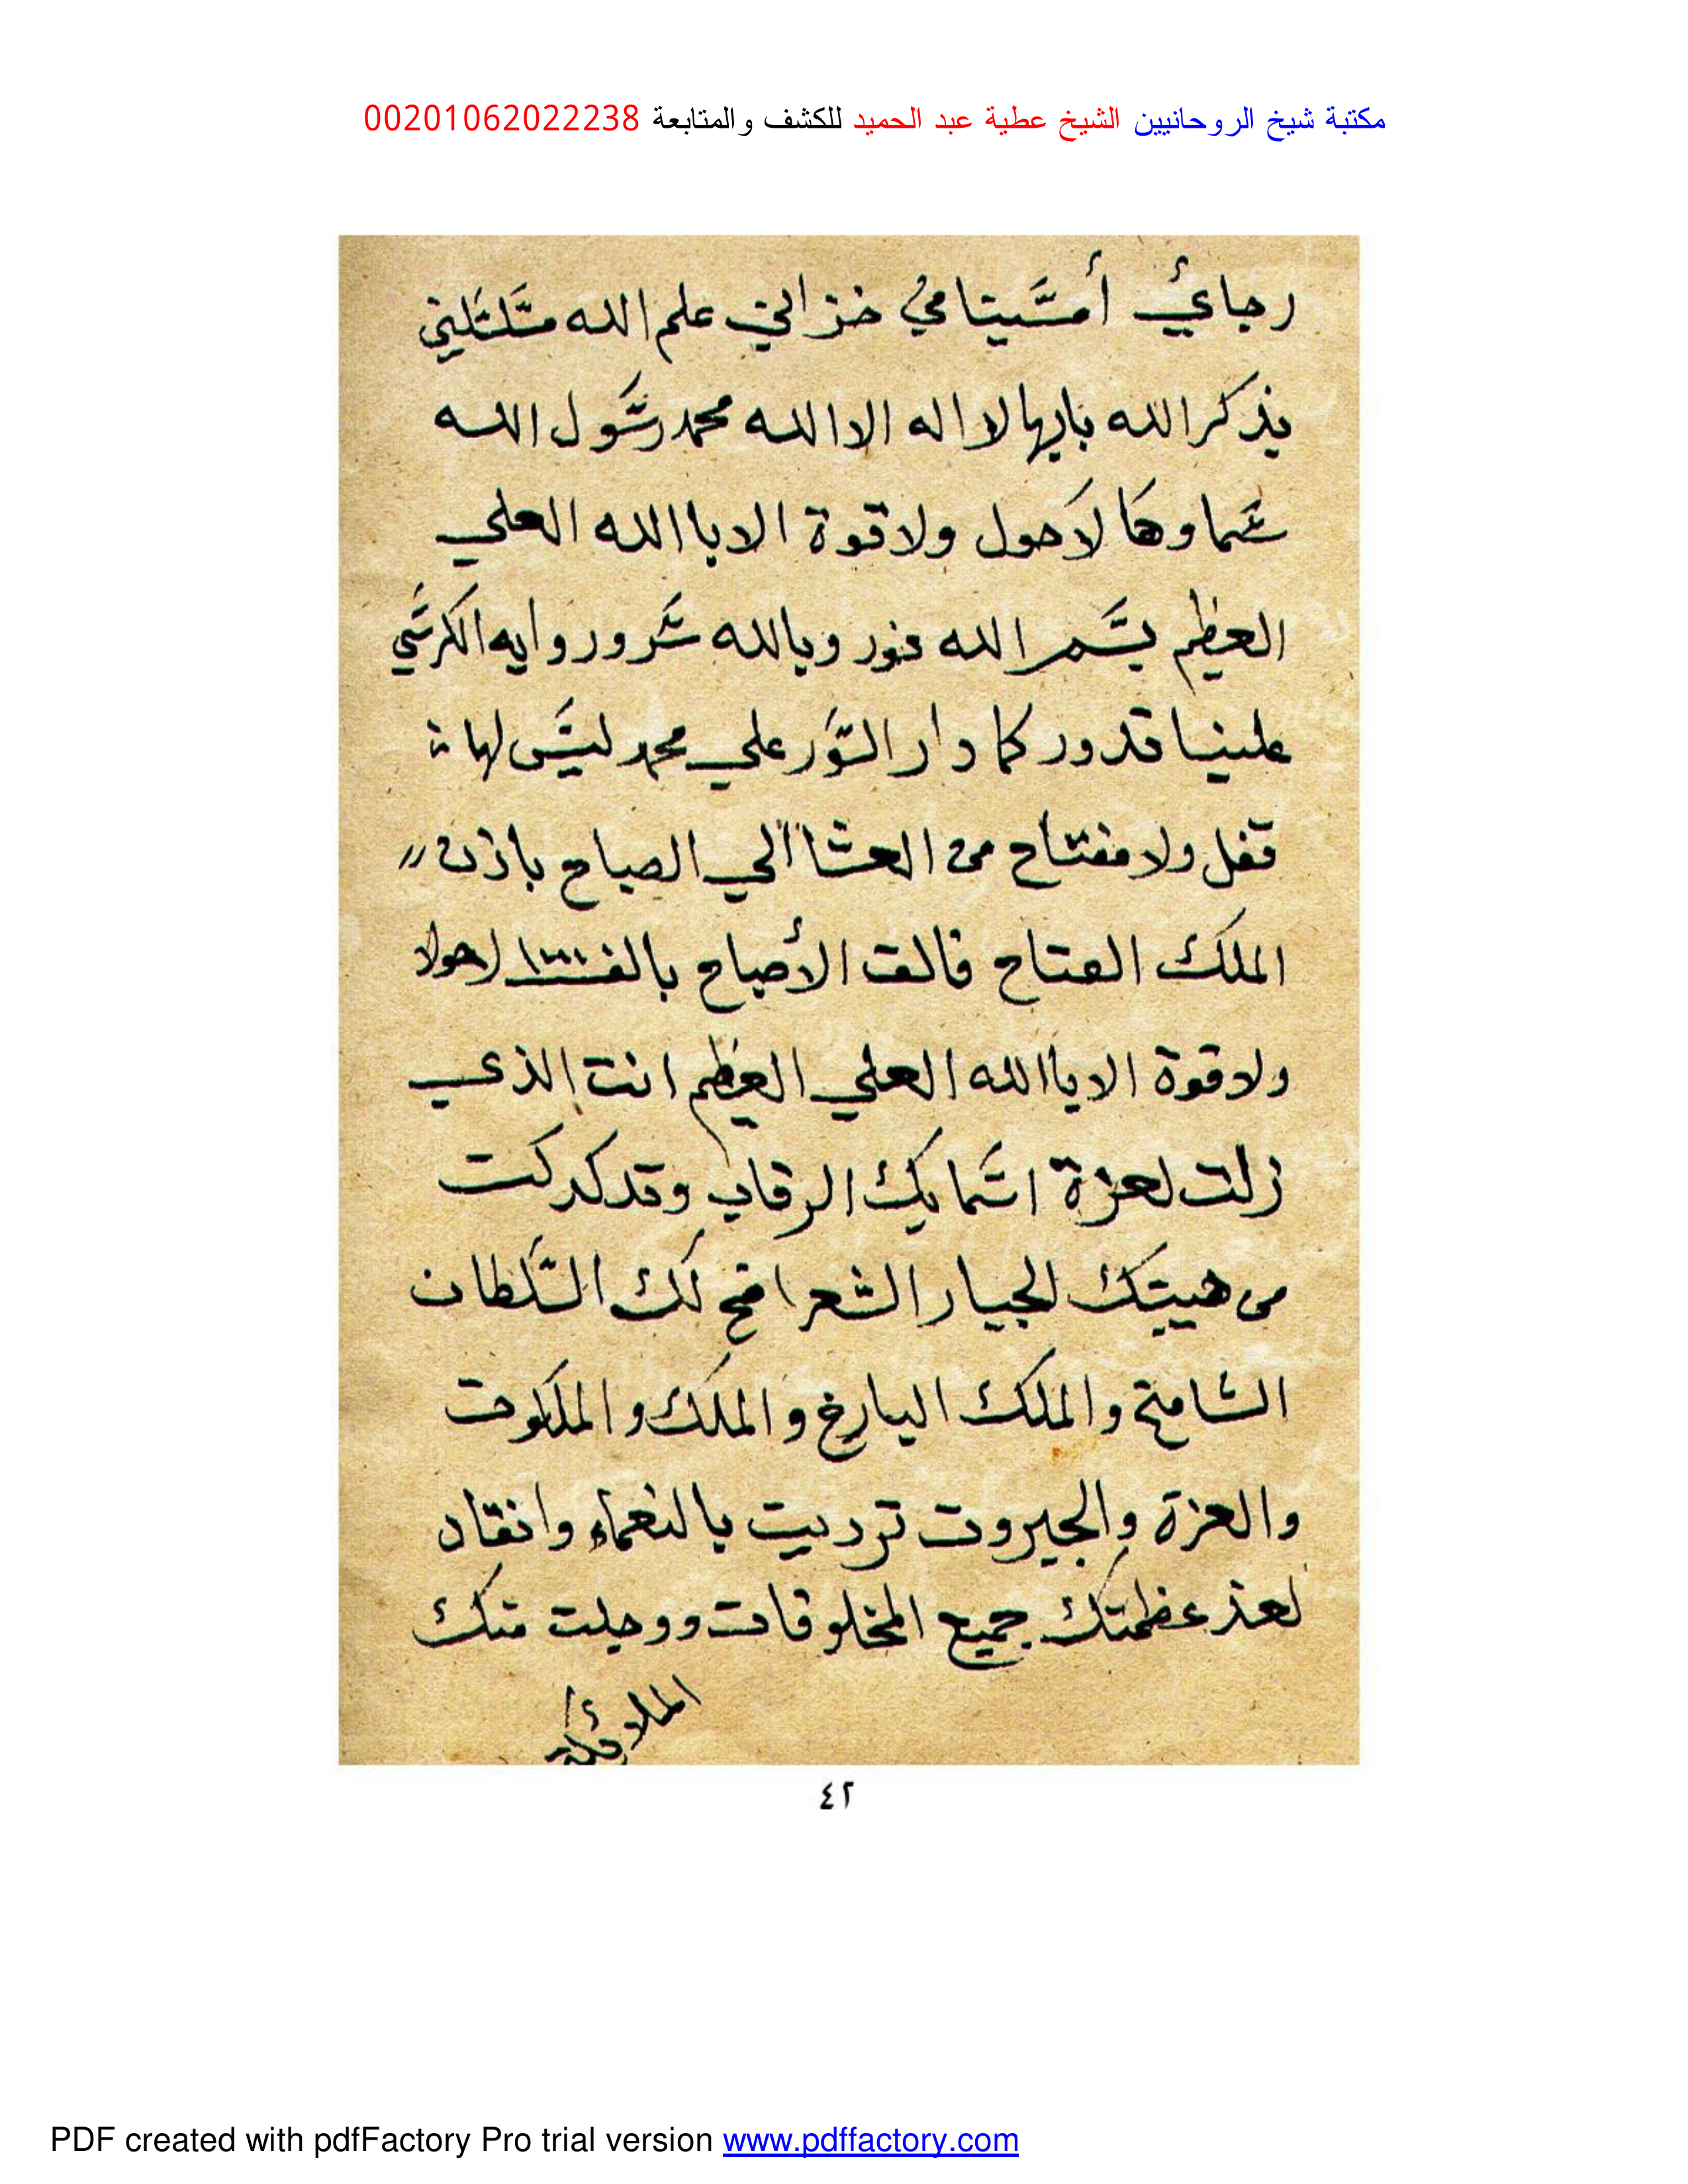 مكتبة شيخ الروحانيين الشيخ عطية عبد الحميد للكشف والمتابعة 00201062022238
رجائي أمسينا في خزائن علم الله
بذكر الله بابها لا اله الا الله محمد رسول الله
سماوها لا حول ولا قوة الا باالله العلي
العظيم بسم الله نور وبالله سرور وايه الكرسي
علينا تدور كما دار السور علي محمد ليس لها
قفل ولا مفتاح من العشاا الي الصباح باذن
الملك الفتاح فالق الأصباح بالف ١٣٠٠ لاحولا
ولا قوة الا باالله العلي العظيم انت الذي
زلت لعزة اسمايك الرقاب وتدكدكت
من هيبتك الجبار الشعرامخ لك السلطان
الشامخ والملك البارخ والملك والملكوت
والعزة والجبروت ترديت بالنعماء وانقاد
لعز عظمتك جميع المخلوقات ووجلت منك
الملائكة
٤٢
PDF created with pdfFactory Pro trial version www.pdffactory.com